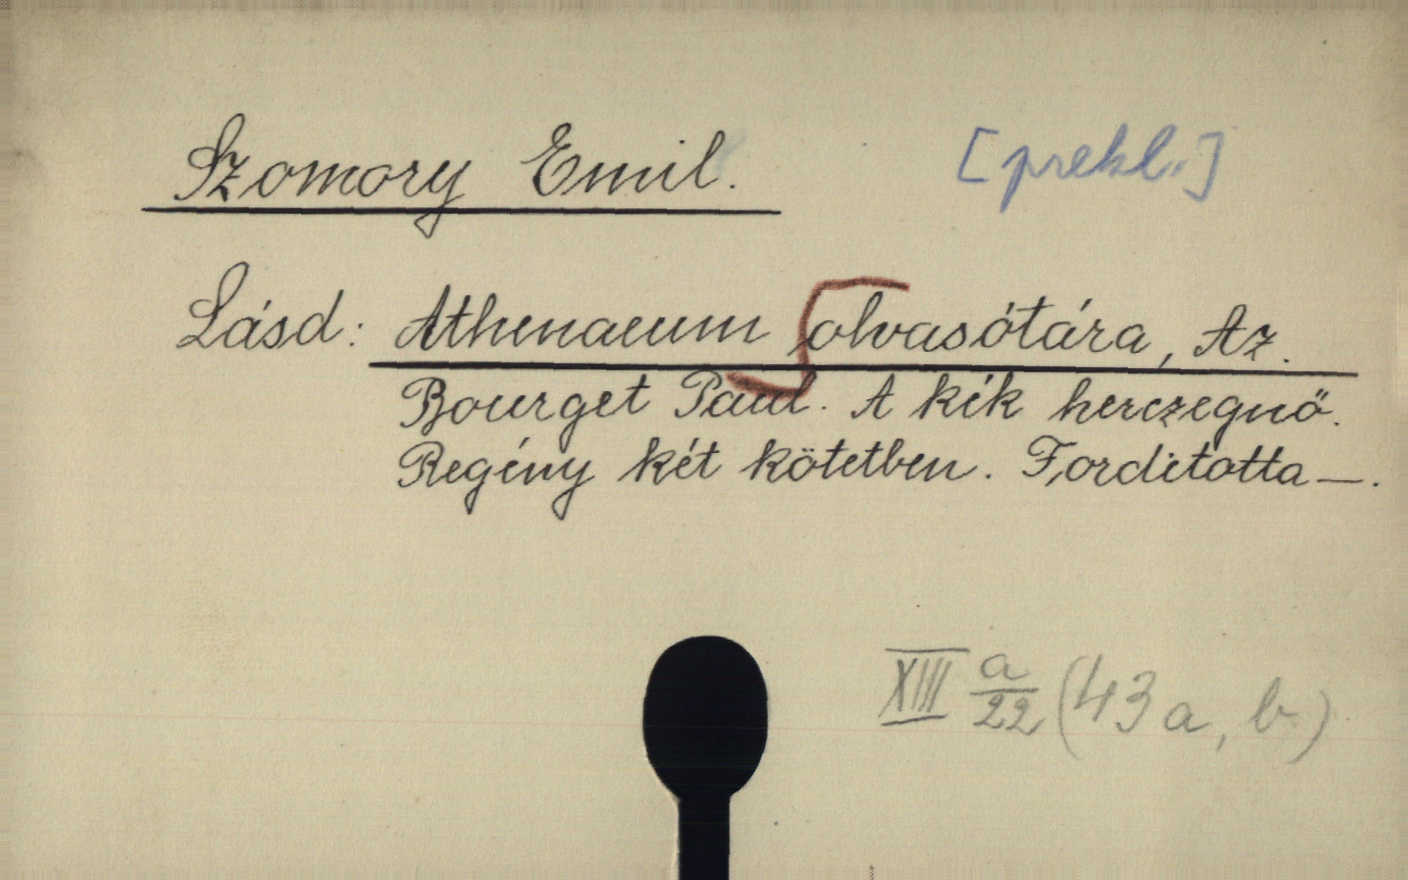 Szomory Emil. [prekl.]
Lásd: Athenaeum olvasótára, Az.
Bourget Paul. A kék herczegnő.
Regény két kötetben. Forditotta —.
XIII a/22 (43 a, b)